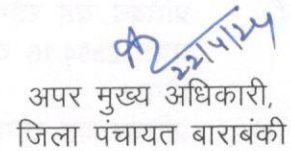 22/4/24
अपर मुख्य अधिकारी,
जिला पंचायत बाराबंकी